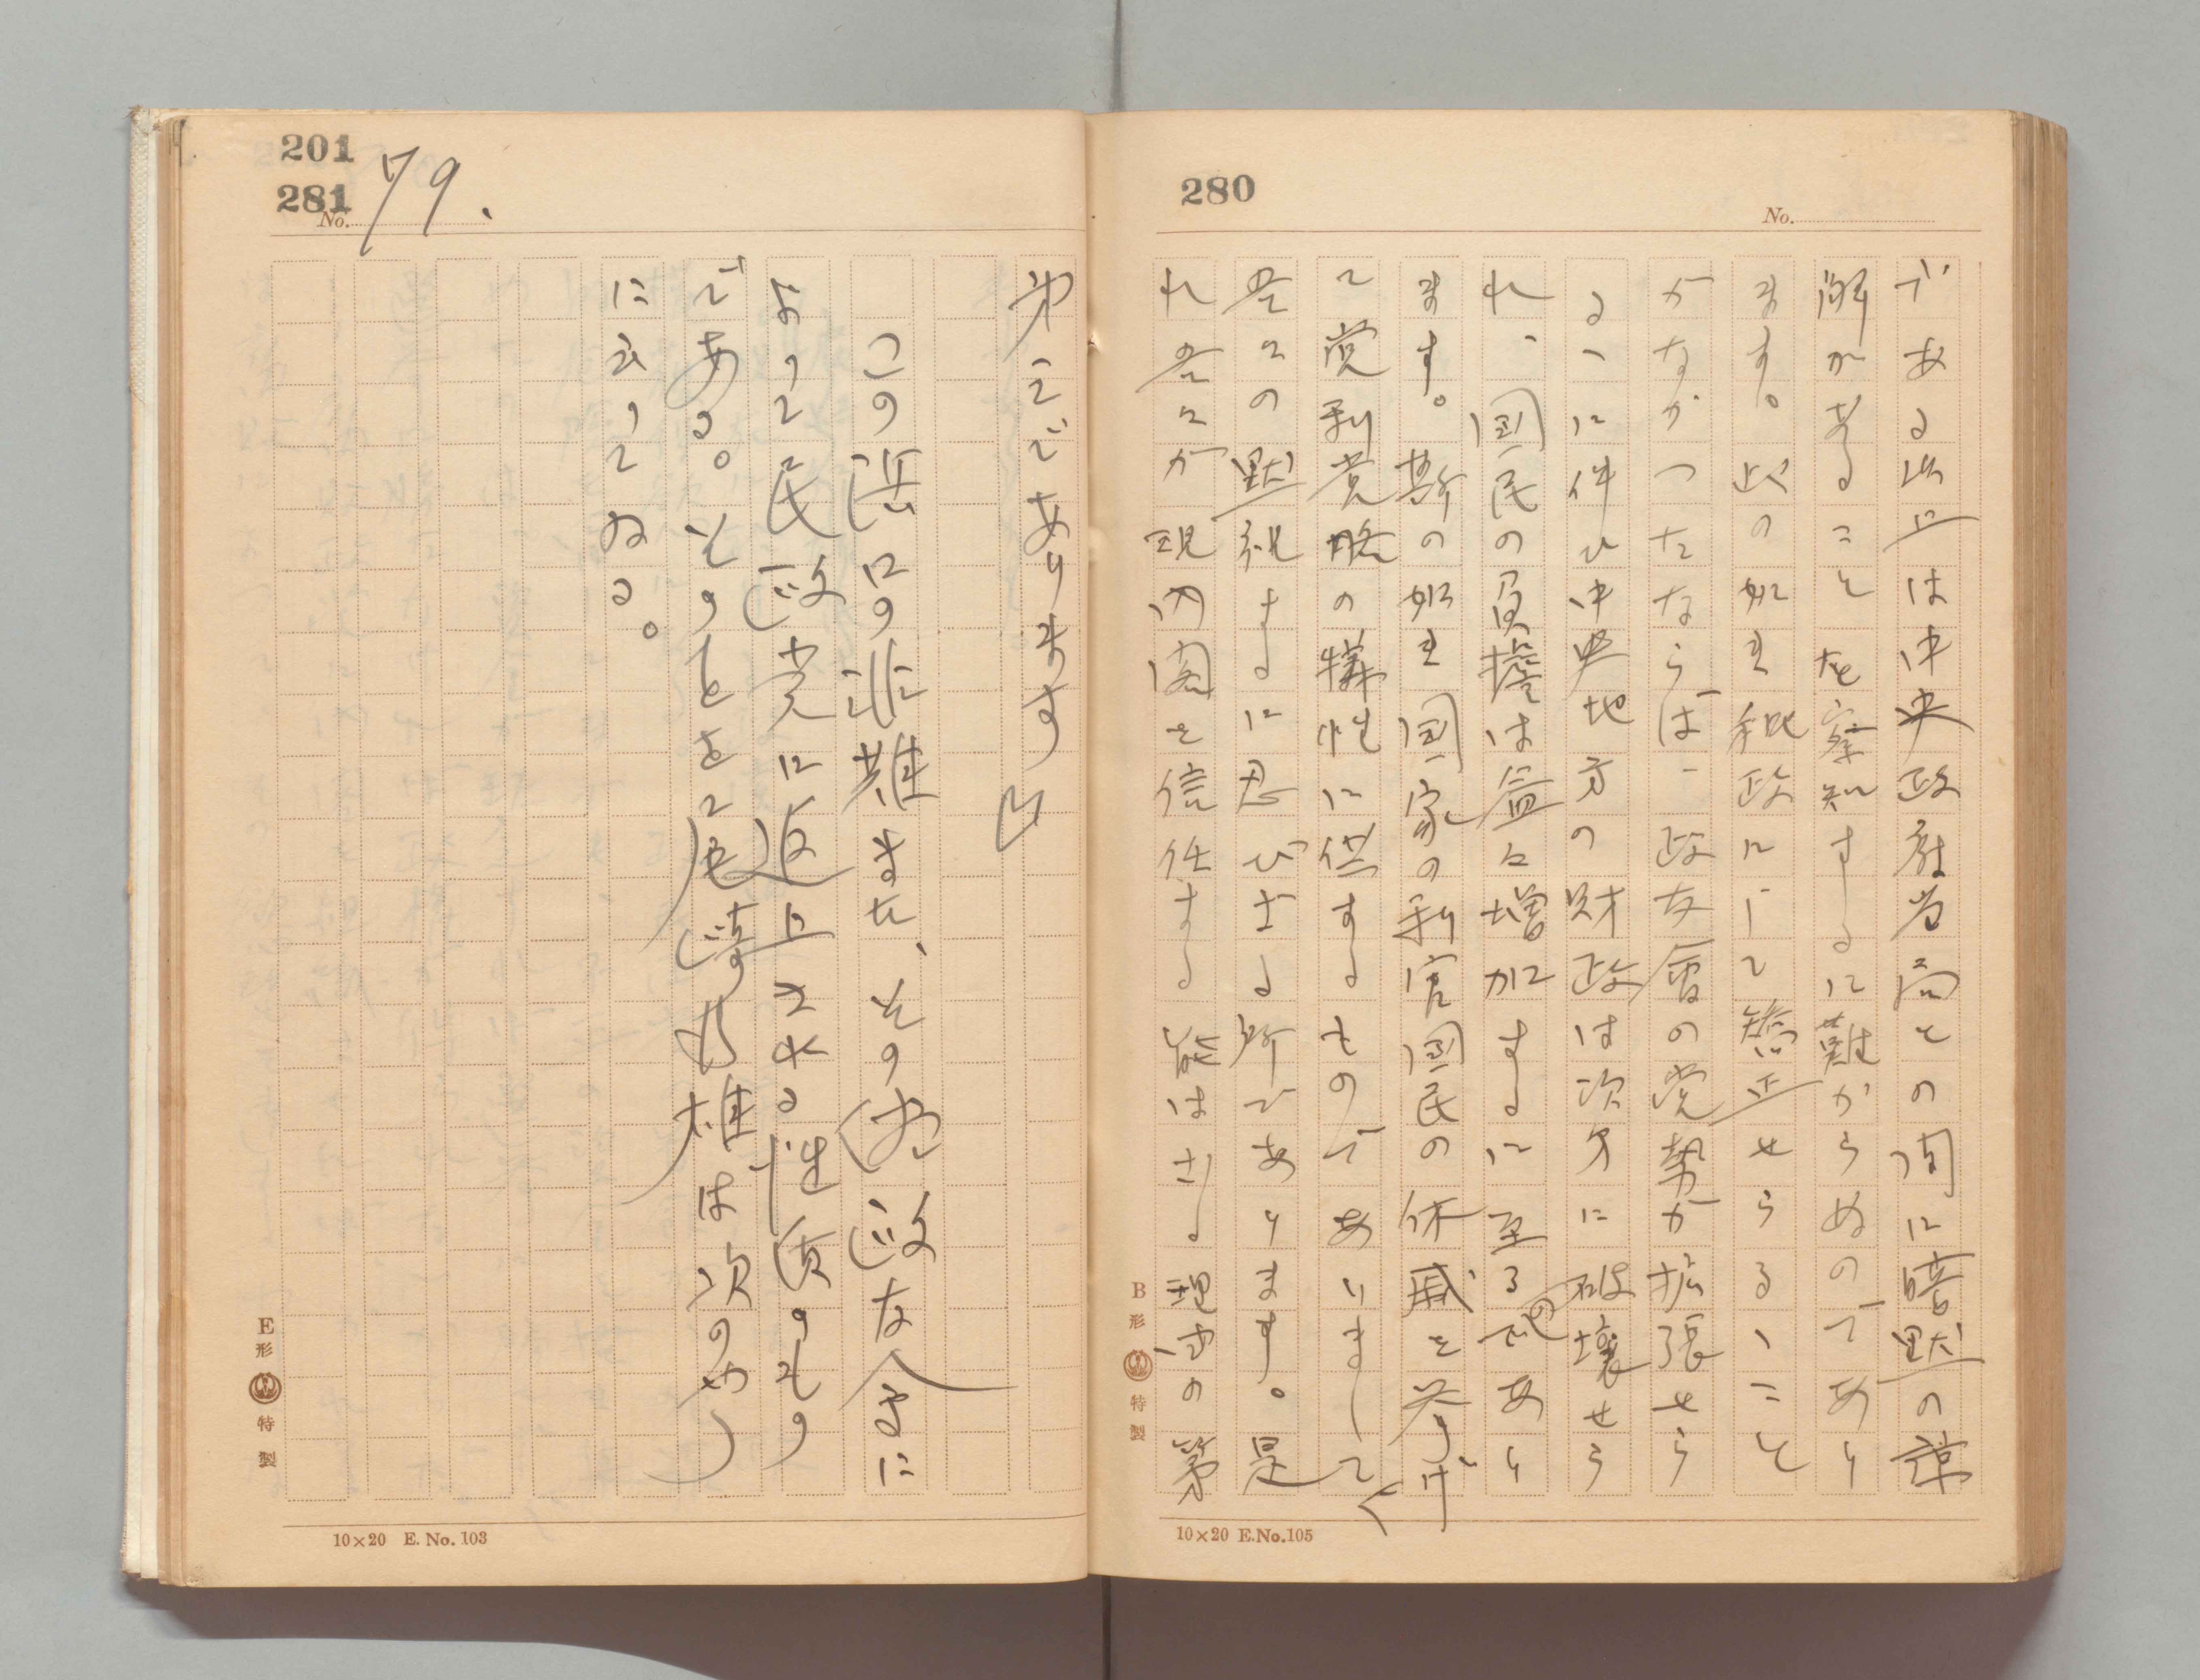 280
No.
である以上は中央政府当局との間に暗黙の諒
解があることを察知するに難からぬのであり
ます。此の如き秕政にして矯正せらるゝこと
がなかつたならば、政友会の党勢が拡張せら
るゝに伴ひ中央地方の財政は次第に破壊せら
れ、国民の負担は益々増加するに至るのであり
ます。斯の如き国家の利害国民の休戚を挙げ
て党利党略の犠牲に供するものでありまして
吾々の黙視するに忍びざる所であります。是
れ吾々が現内閣を信任する能はざる理由の第
B形 特製
10×20 E.No.105
201
281
No. 79.
二であります」
この浜口の非難また、その
な
によつて民政党に返上される性質のもの
である。そのことを尾崎行雄は次のやう
に云つてゐる。
E形 特製
10×20 E. No. 103